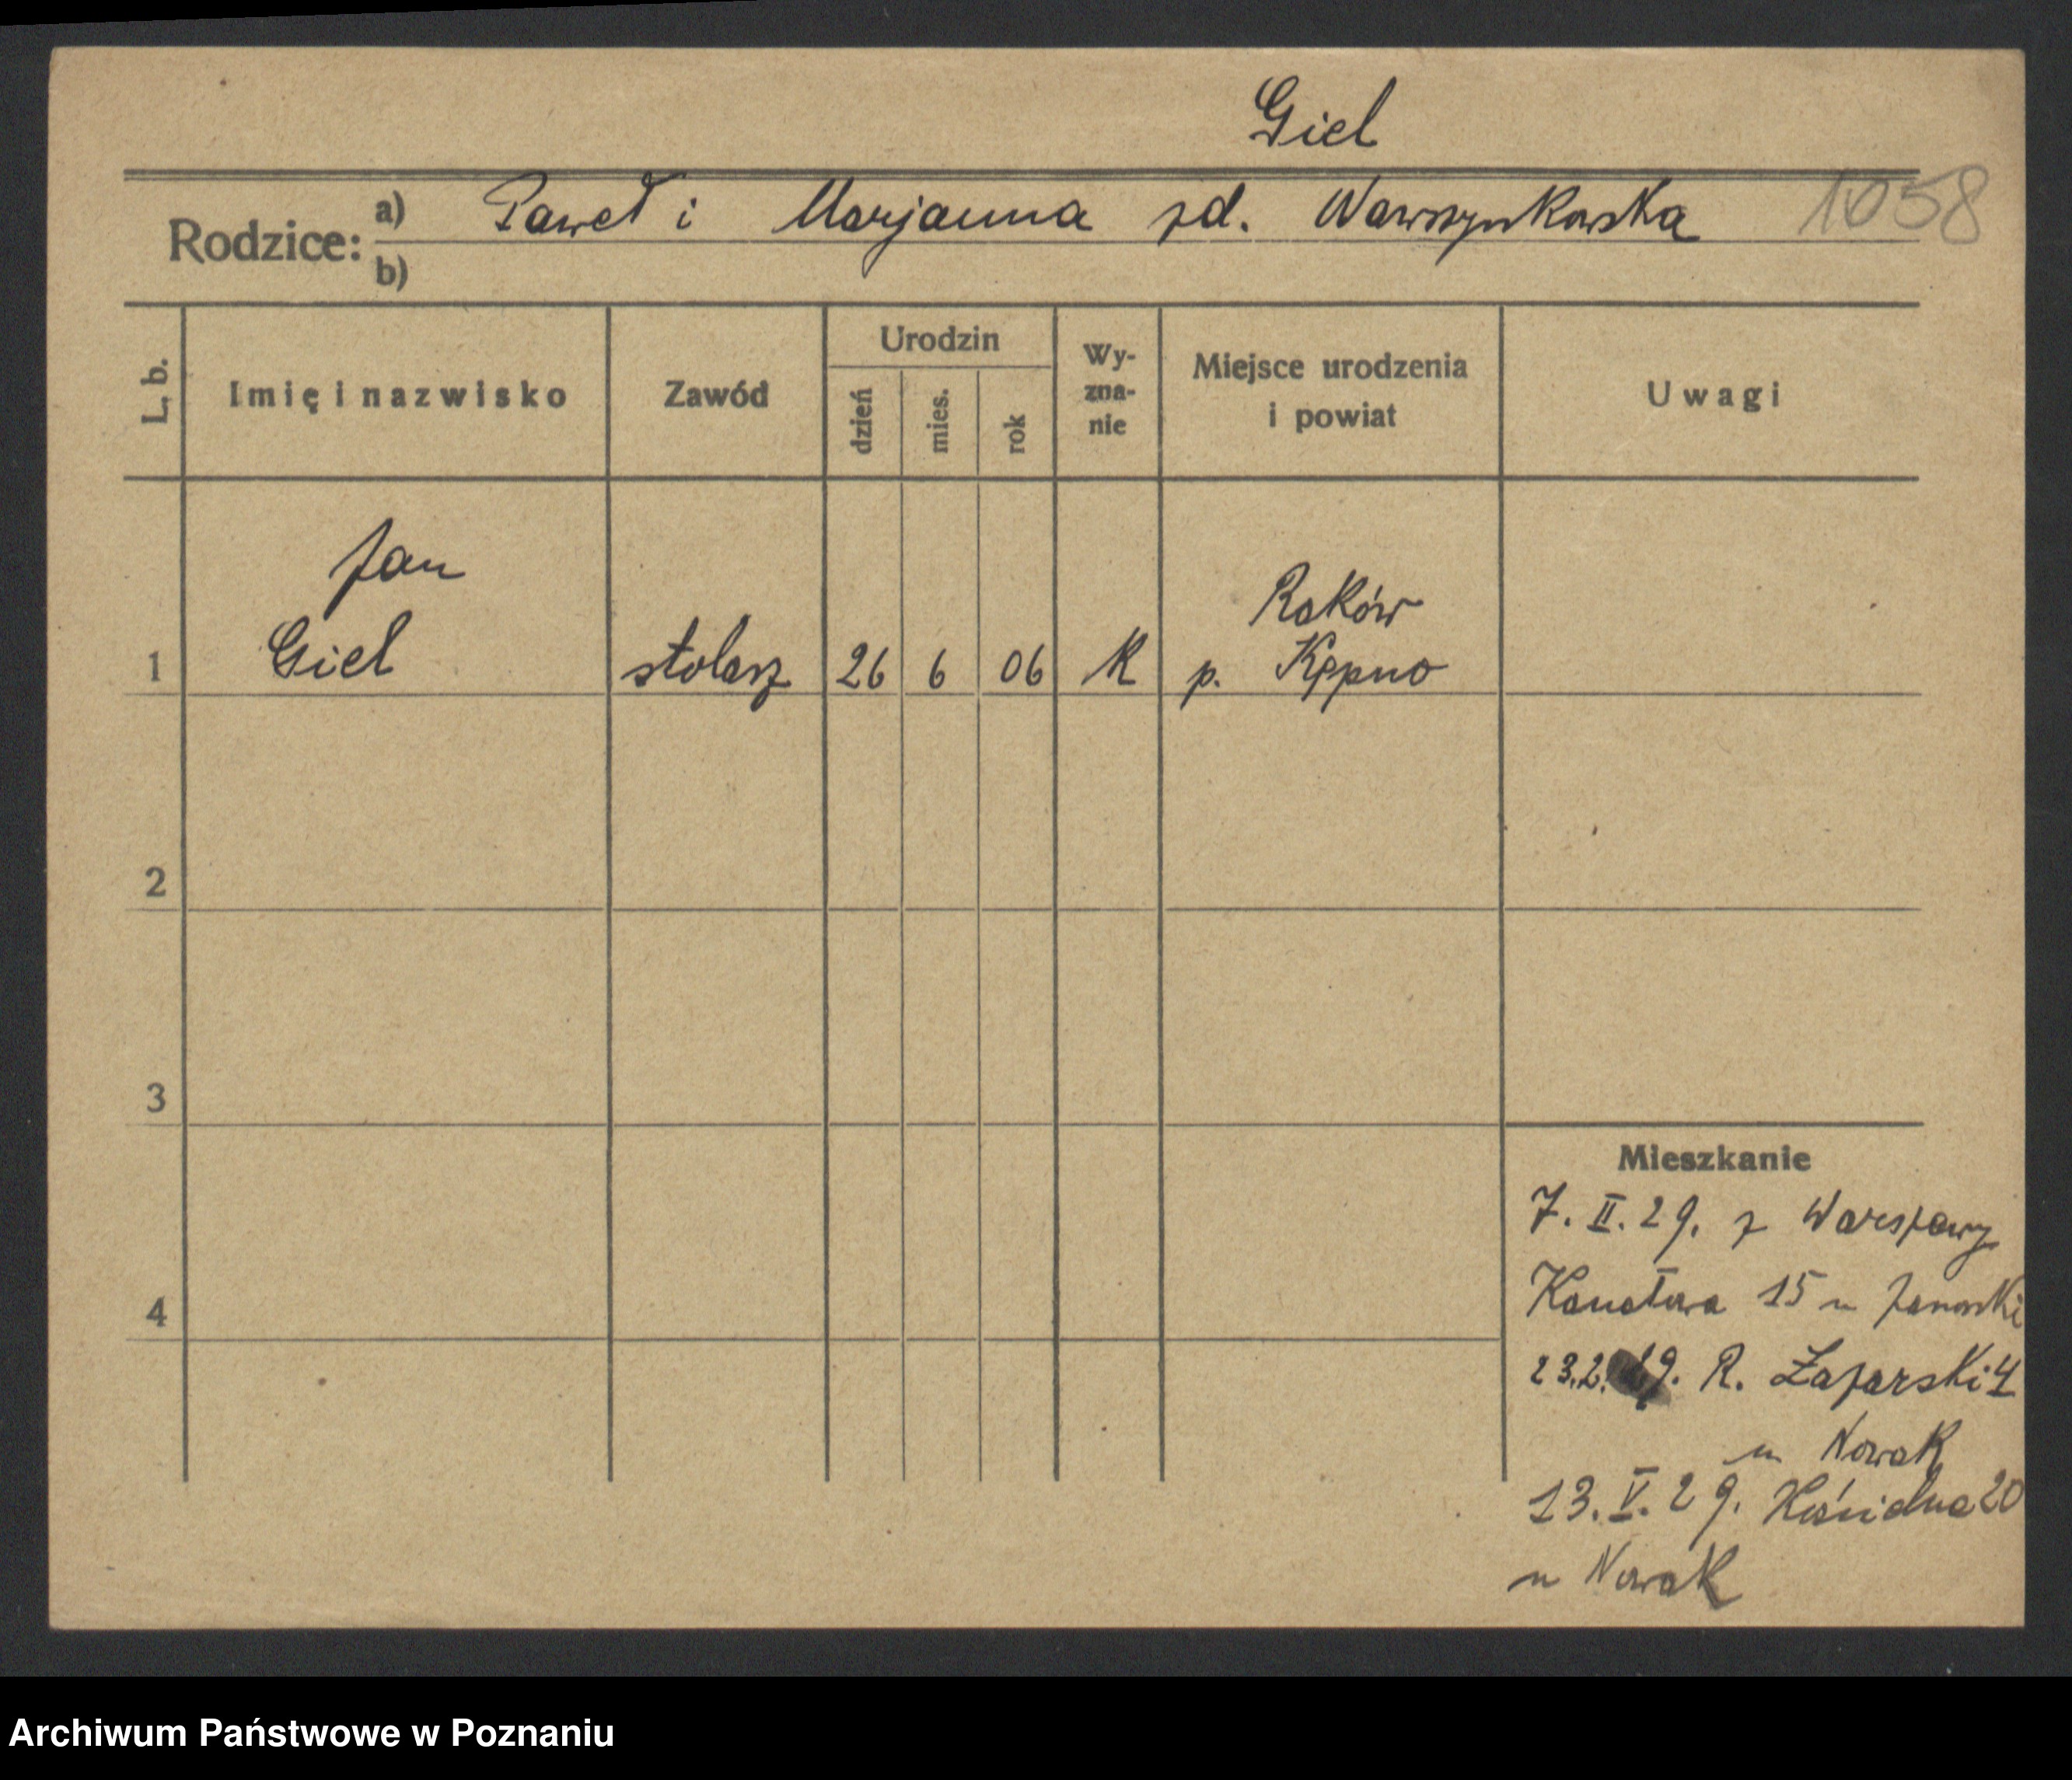 Giel
Rodzice: a) Paweł i Marjanna zd. Wawrzynkowska 1058
b)
L. b. Imię i nazwisko Zawód Urodzin dzień mies. rok Wyznanie Miejsce urodzenia i powiat Uwagi
Jan
Raków
1 Giel stolarz 26 6 06 K p. Kępno
2
3
Mieszkanie
7. II. 29. z Warszawy
4
Kanałowa 15 u
23.2. 29. R. Łazarski 4
u Nowak
13. V. 29. 20
u Nowak
Archiwum Państwowe w Poznaniu